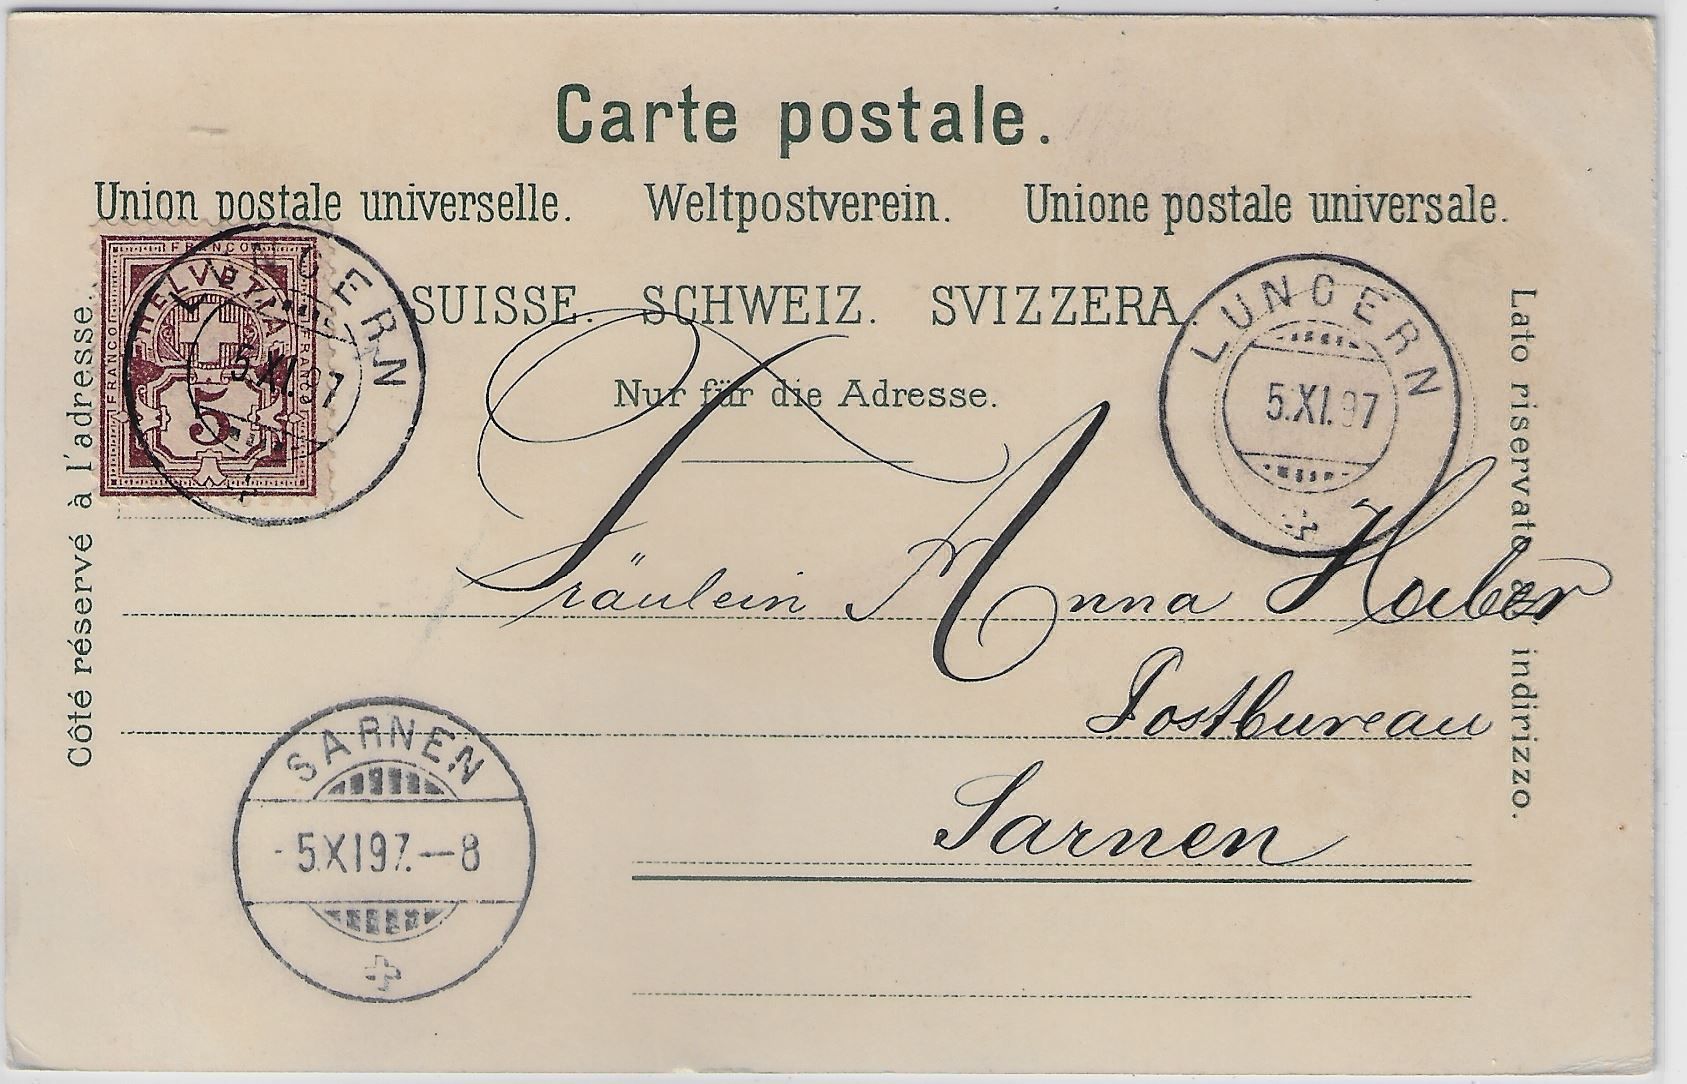 Carte postale.
Union postale universelle. Weltpostverein. Unione postale universale.
SUISSE. SCHWEIZ. SVIZZERA.
Nur für die Adresse.
Côté réservé à l'adresse.
Lato riservato all' indirizzo.
FRANCO
FRANCO
FRANCO
HELVETIA
5
LUNGERN
5.XI.97
LUNGERN
5.XI.97
Fräulein Anna Huber
Postbureau
Sarnen
SARNEN
-5.XI97.—8